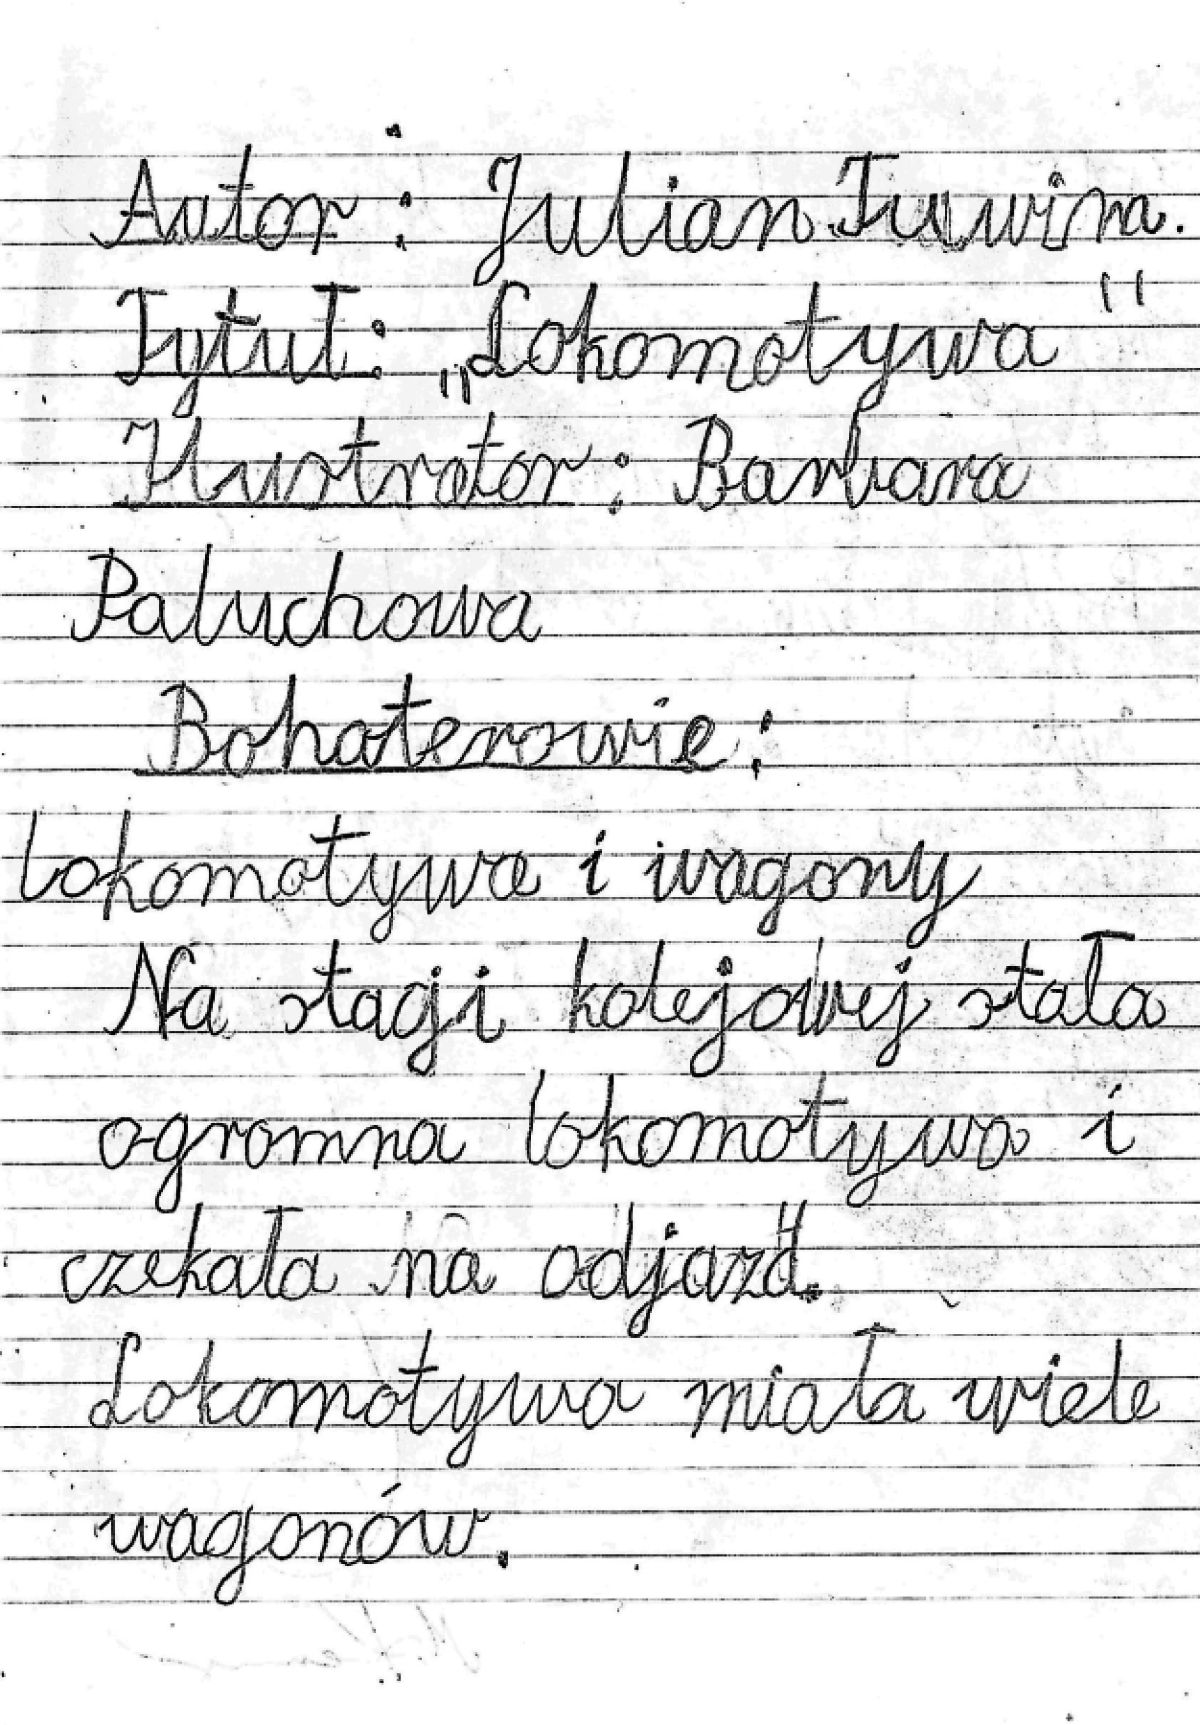 Autor: Julian Tuwima.
Tytuł: „Lokomotywa"
Ilustrator: Barbara
Paluchowa
Bohaterowie:
lokomotywa i wagony
Na stagji kolejowej stała
ogromna lokomotywa i
czekała na odjazd.
Lokomotywa miała wiele
wagonów.